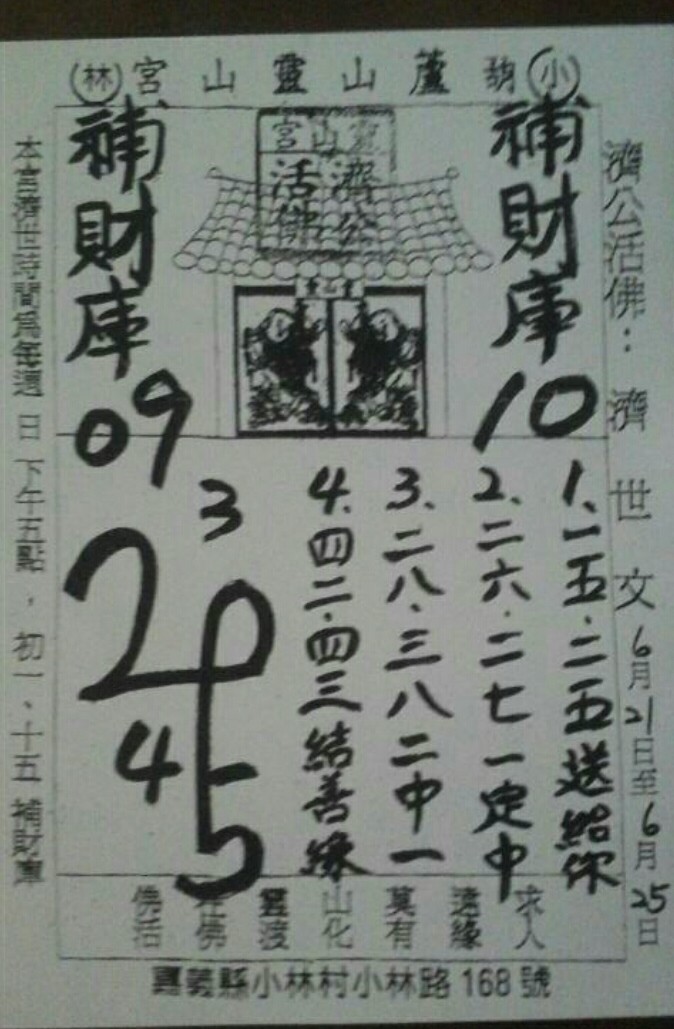 小葫蘆山靈山宮林
濟公活佛:濟世文6月21日至6月25日
靈山宮
濟公
活佛
靈山宮
補財庫
10
補財庫
09
1、一五·二五送給你
2、二六·二七一定中
3、二八·三八二中一
4、四二·四三結善緣
3
2
4
5
求人
遠緣
莫有
山化
靈渡
佛
佛活
本宮濟世時間為每週日下午五點,初一、十五補財庫
嘉義縣小林村小林路168號